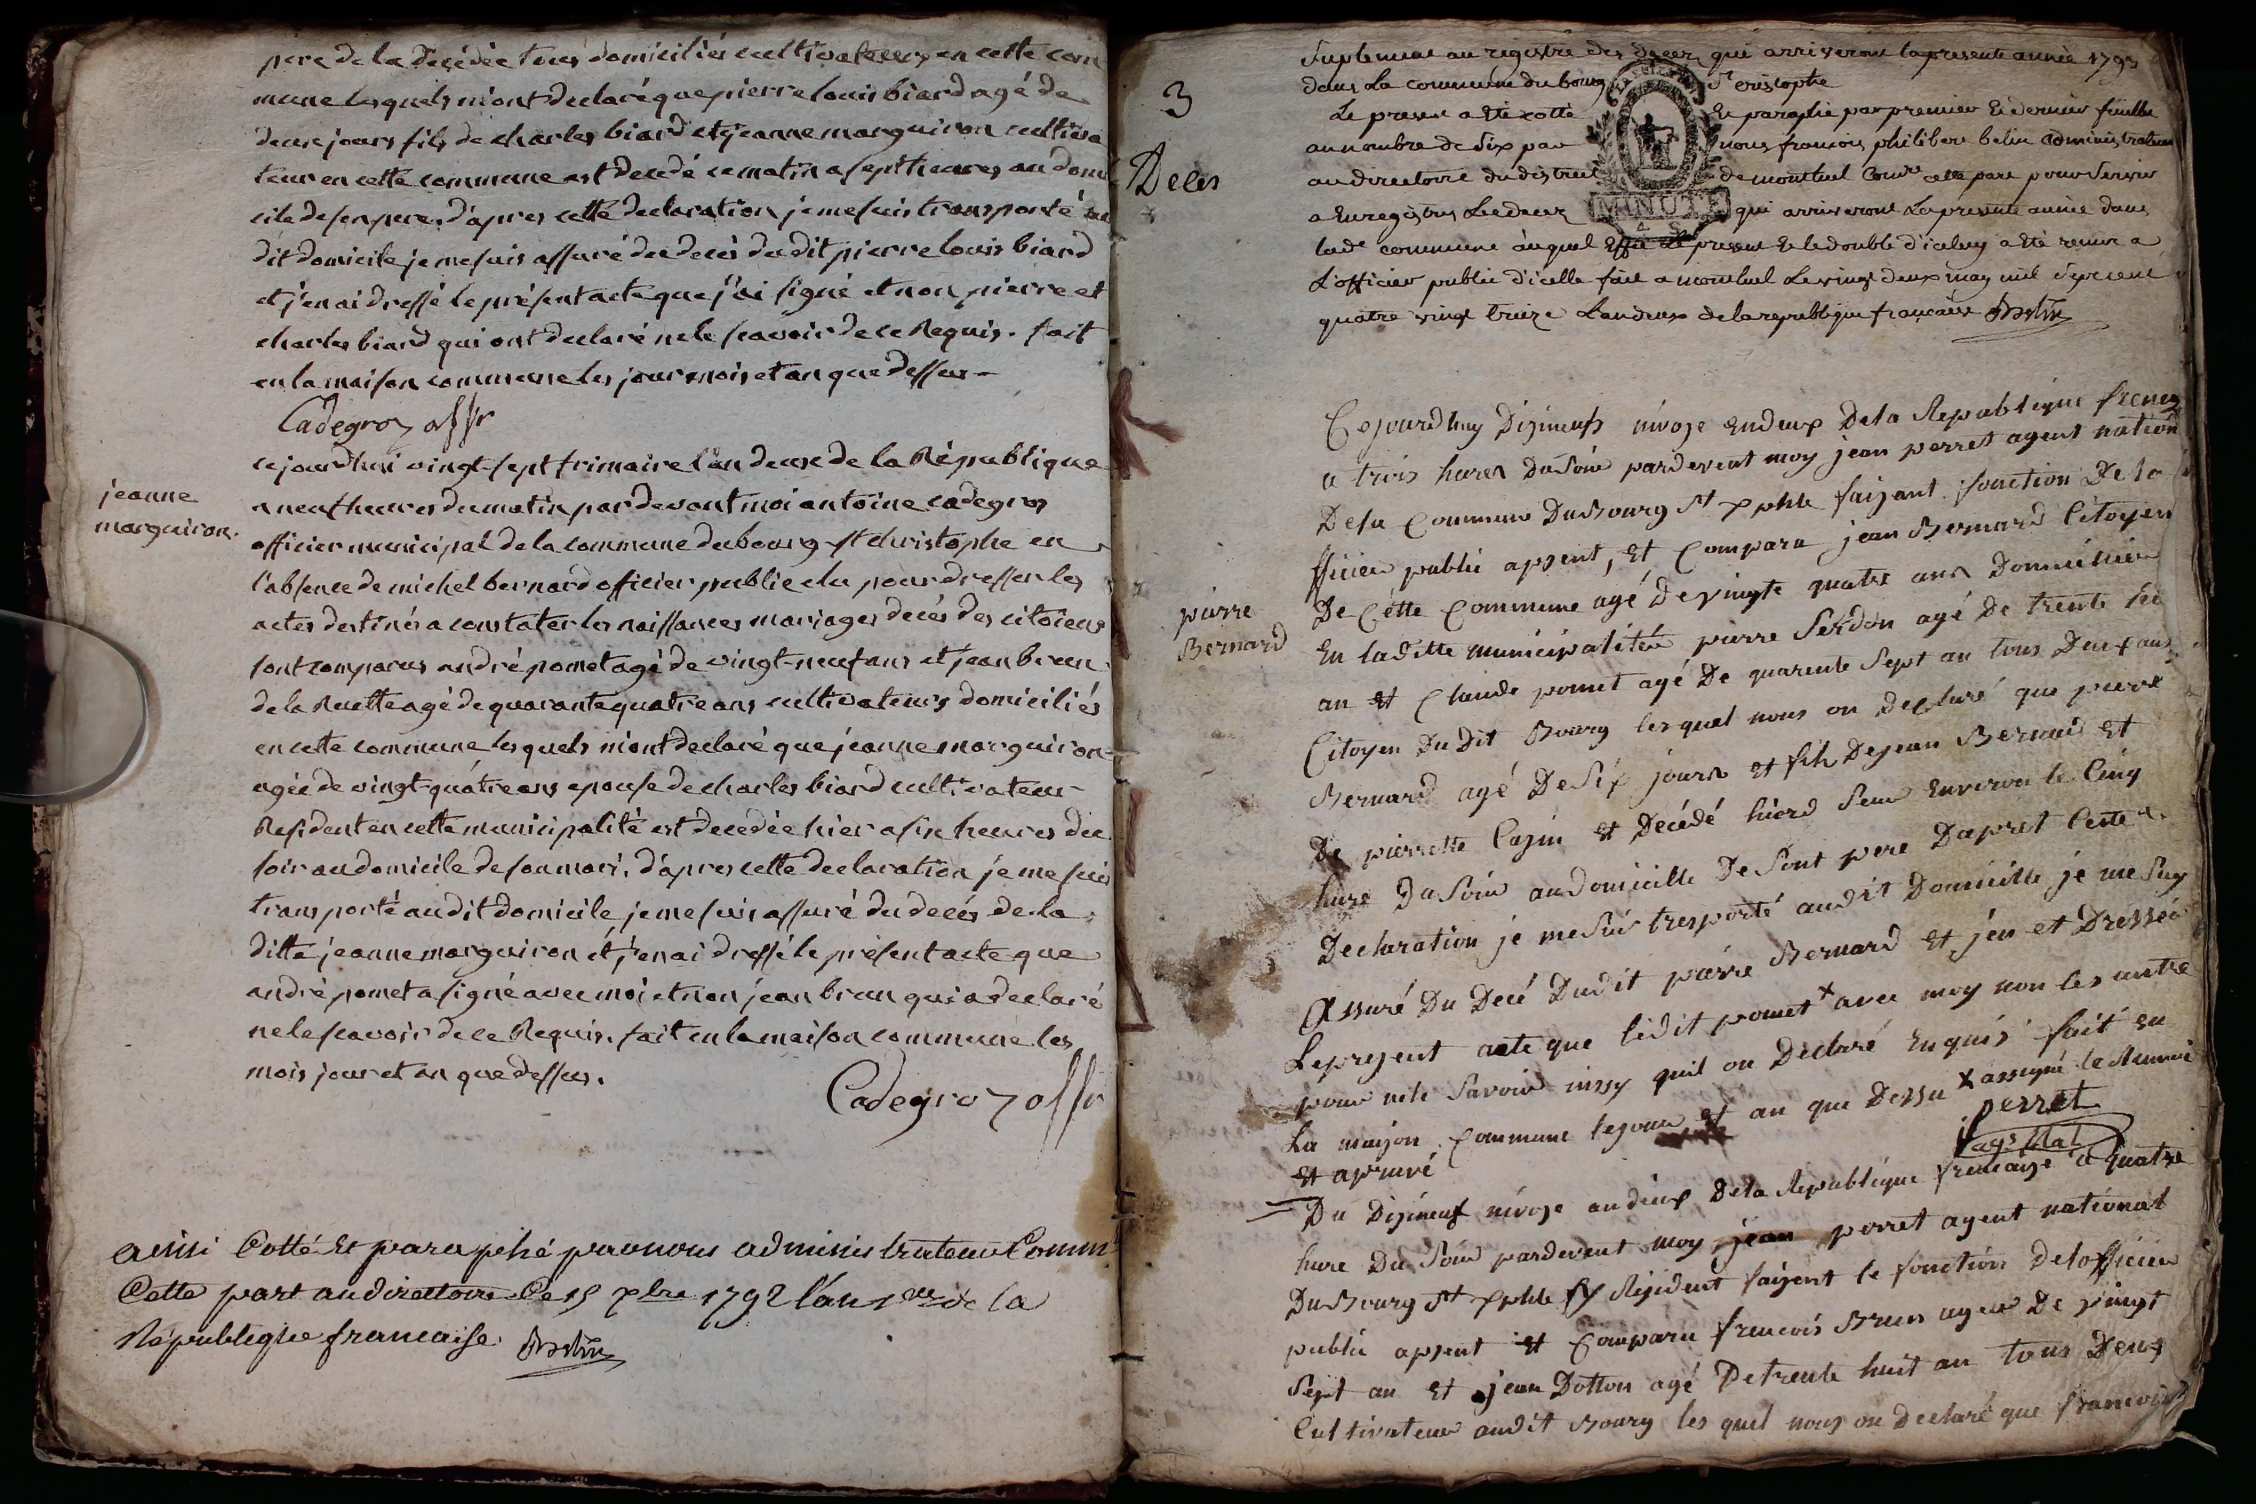 pere de la décédée tous domiciliés cultivateurs en cette com
mune lesquels m'ont declaré que pierre louis biard agé de
deux jours fils de charles biard et jeanne marguiron cultiva
teur en cette commune est decedé ce matin a sept heures au domi
cile de son pere, d'apres cette declaration je me suis transporté au
dit domicile je me suis assuré du decès du dit pierre louis biard
et j'en ai dressé le présent acte que j'ai signé et non pierre et
charles biard qui ont declaré ne le scavoir de ce Requis. fait
en la maison commune les jour mois et an que dessus -
Cadegros offr
jeanne
marguiron.
cejourdhui vingt-sept frimaire l'an deux de la République
a neuf heures du matin par devant moi antoine cadegros
officier municipal de la commune du bourg st christophe en
l'absence de michel bernard officier public elu pour dresser les
actes destinés a constater les naissances mariages decès des citoiens
sont comparus andré pomet agé de vingt-neuf ans et jean brun
de la Ruette agé de quarante quatre ans cultivateurs domiciliés
en cette commune lesquels m'ont declaré que jeanne marguiron
agée de vingt-quatre ans epouse de charles biard cultivateur
Resident en cette municipalité est decedée hier a six heures du
soir au domicile de son mari, d'apres cette declaration je me suis
transporté au dit domicile, je me suis assuré du decès de la
ditte jeanne marguiron et j'en ai dressé le présent acte que
andré pomet a signé avec moi et non jean brun qui a declaré
ne le scavoir de ce Requis. fait en la maison commune les
mois jour et an que dessus.
Cadegros offr
ainsi Cotté et paraphé par nous administrateur Comm
Cette part au directoire Ce 15 xbre 1792 l'an 1er de la
République francaise. Belin
3
Deces
Suplement au registre des deces qui arriveront la presente année 1793
dans La commune du bourg St cristophe
Le present a eté cotté Et paraphé par premier Et dernier feuillet
au nombre de Six par nous francois philibert belin administrateur
au directoire du district de montluel Comre cette part pour Servir
a Enregistrer Les deces qui arriveront La presente année dans
lade commune auquel Effet Le present Et le double d'iceluy a eté remis a
L'officier public d'icelle fait a montluel Le vingt deux may mil Sept cent
quatre vingt treize L'an deux de la republique francaise Belin
MINUTE
Cejourdhuy Dizineufs nivose En deux De la Republique frencay
a trois hures Du Soir pardevent moy jean perret agent nation
De la Commune Du Bourg St xpohle faizant fonction De lo
fficier public apsent, Et Compara jean Bernard Citoyen
De Cette Commune agé De vingte quatre ans Domicilier
En laditte municipalitée pierre Serdon agé De trente
an Et Claude pomet agé De quarente Sept an tous Deux aussi
Citoyen Du Dit Bourg les quel nous on Declaré que pierre
Bernard agé De Six jours et fils De jean Bernard Et
De pierrette Cazin Et Decédé hierd Seur Environ le Cinq
hure Du Soir au Domicille De Sont pere Dapret Cette
Declaration jé me Suis tresporté audit Domicille jé me Suy
Assuré Du Decé Dudit pierre Bernard Et jen et Dressée
Le prezent acte que ledit pomet x avec moy non les autre
pour nele Savoir inssy quil on Declaré Enquis fait En
La maizon Commune le jour Et an que Dessu x assigné le Rumui
Et apruvé
perret
agt Nal
pierre
Bernard
= Du Dizineuf nivoze an deux De la Republique frencaize a quatre
hure Du Soir pardevent moy jean perret agent national
Du Bourg St xpohle fy Rejident faizent le fonction De lofficier
public apsent Et Comparu francois Brun agee De vingt
Sept an Et jean Dotton agé De trente huit an tous Deux
Cultivateur audit Bourg les quel nous on declaré que francois